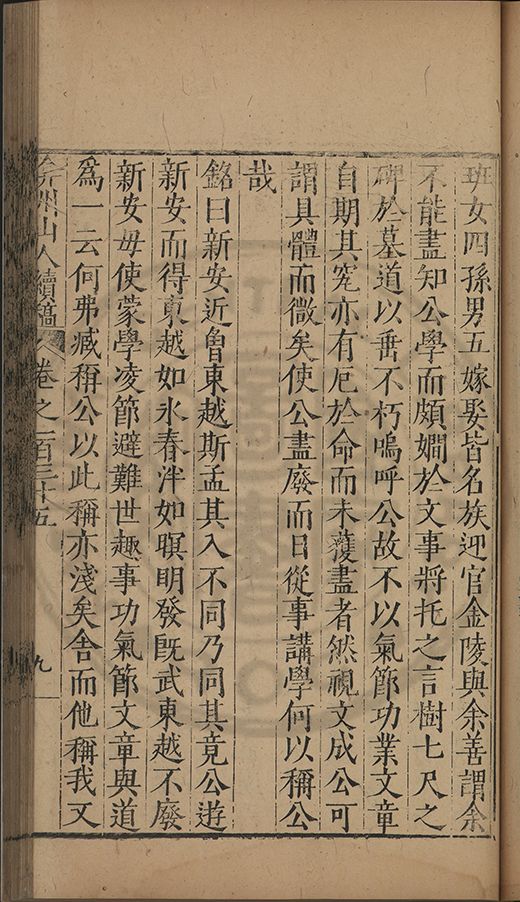 班女四孫男五嫁娶皆名族迎官金陵與余善謂余
不能盡知公學而頗嫺於文事將托之言樹七尺之
碑於墓道以垂不朽嗚呼公故不以氣節功業文章
自期其究亦有厄於命而未薙盡者然視文成公可
謂具體而微矣使公盡廢而日從事講學何以稱公
哉
銘曰新安近魯東越斯孟其入不同乃同其竟公遊
新安而得東越如氷春泮如暝明發旣武東越不廢
新安毋使蒙學凌節避難世趣事功氣節文章與道
爲一云何弗臧稱公以此稱亦淺矣舍而他稱我又
弇州山人續稿 卷之一百三十五 九